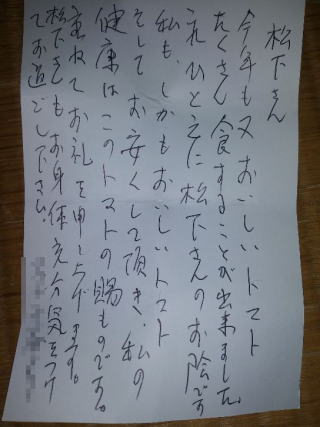 松下さん
今年も又おいしいトマト
たくさん食することが出来ました。
これひとえに松下さんのお陰です
私も、しかもおいしいトマト
そしてお安くして頂き、私の
健康はこのトマトの賜ものです。
重ねてお礼を申し上げます。
松下さんもお身体充分気をつけ
てお過ごし下さい。